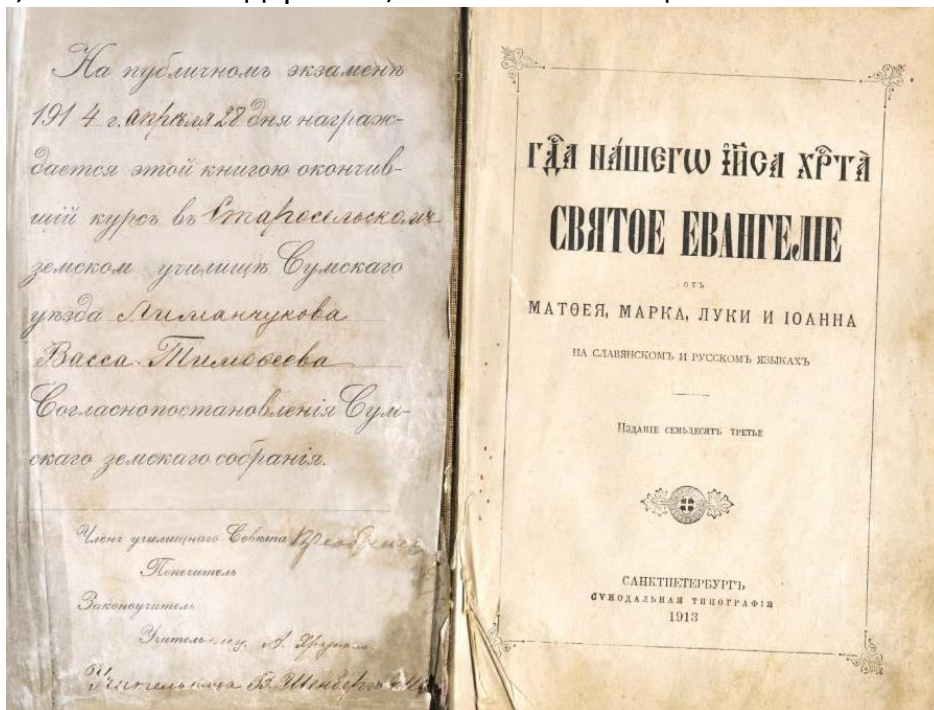 На публичномъ экзаменѣ
191 4 г. апрѣля 28 дня награж-
дается этой книгою окончив-
шій курсъ въ Старосельскомъ
земском училищѣ Сумскаго
уѣзда Лиманчукова
Васса Тимоѳеева
Согласно постановленія Сум-
скаго земскаго собранія.
Членъ училищнаго Совѣта
Попечитель
Законоучитель
Учитель
Учительница В. Шенберг
ГДⷭ҇А НА́ШЕГѠ І҆И҃СА ХРⷭ҇ТА̀
СВЯТОЕ ЕВАНГЕЛІЕ
отъ
МАТѲЕЯ, МАРКА, ЛУКИ И ІОАННА
НА СЛАВЯНСКОМЪ И РУССКОМЪ ЯЗЫКАХЪ
Изданіе семьдесятъ третье
САНКТПЕТЕРБУРГЪ
СѴНОДАЛЬНАЯ ТИПОГРАФІЯ
1913